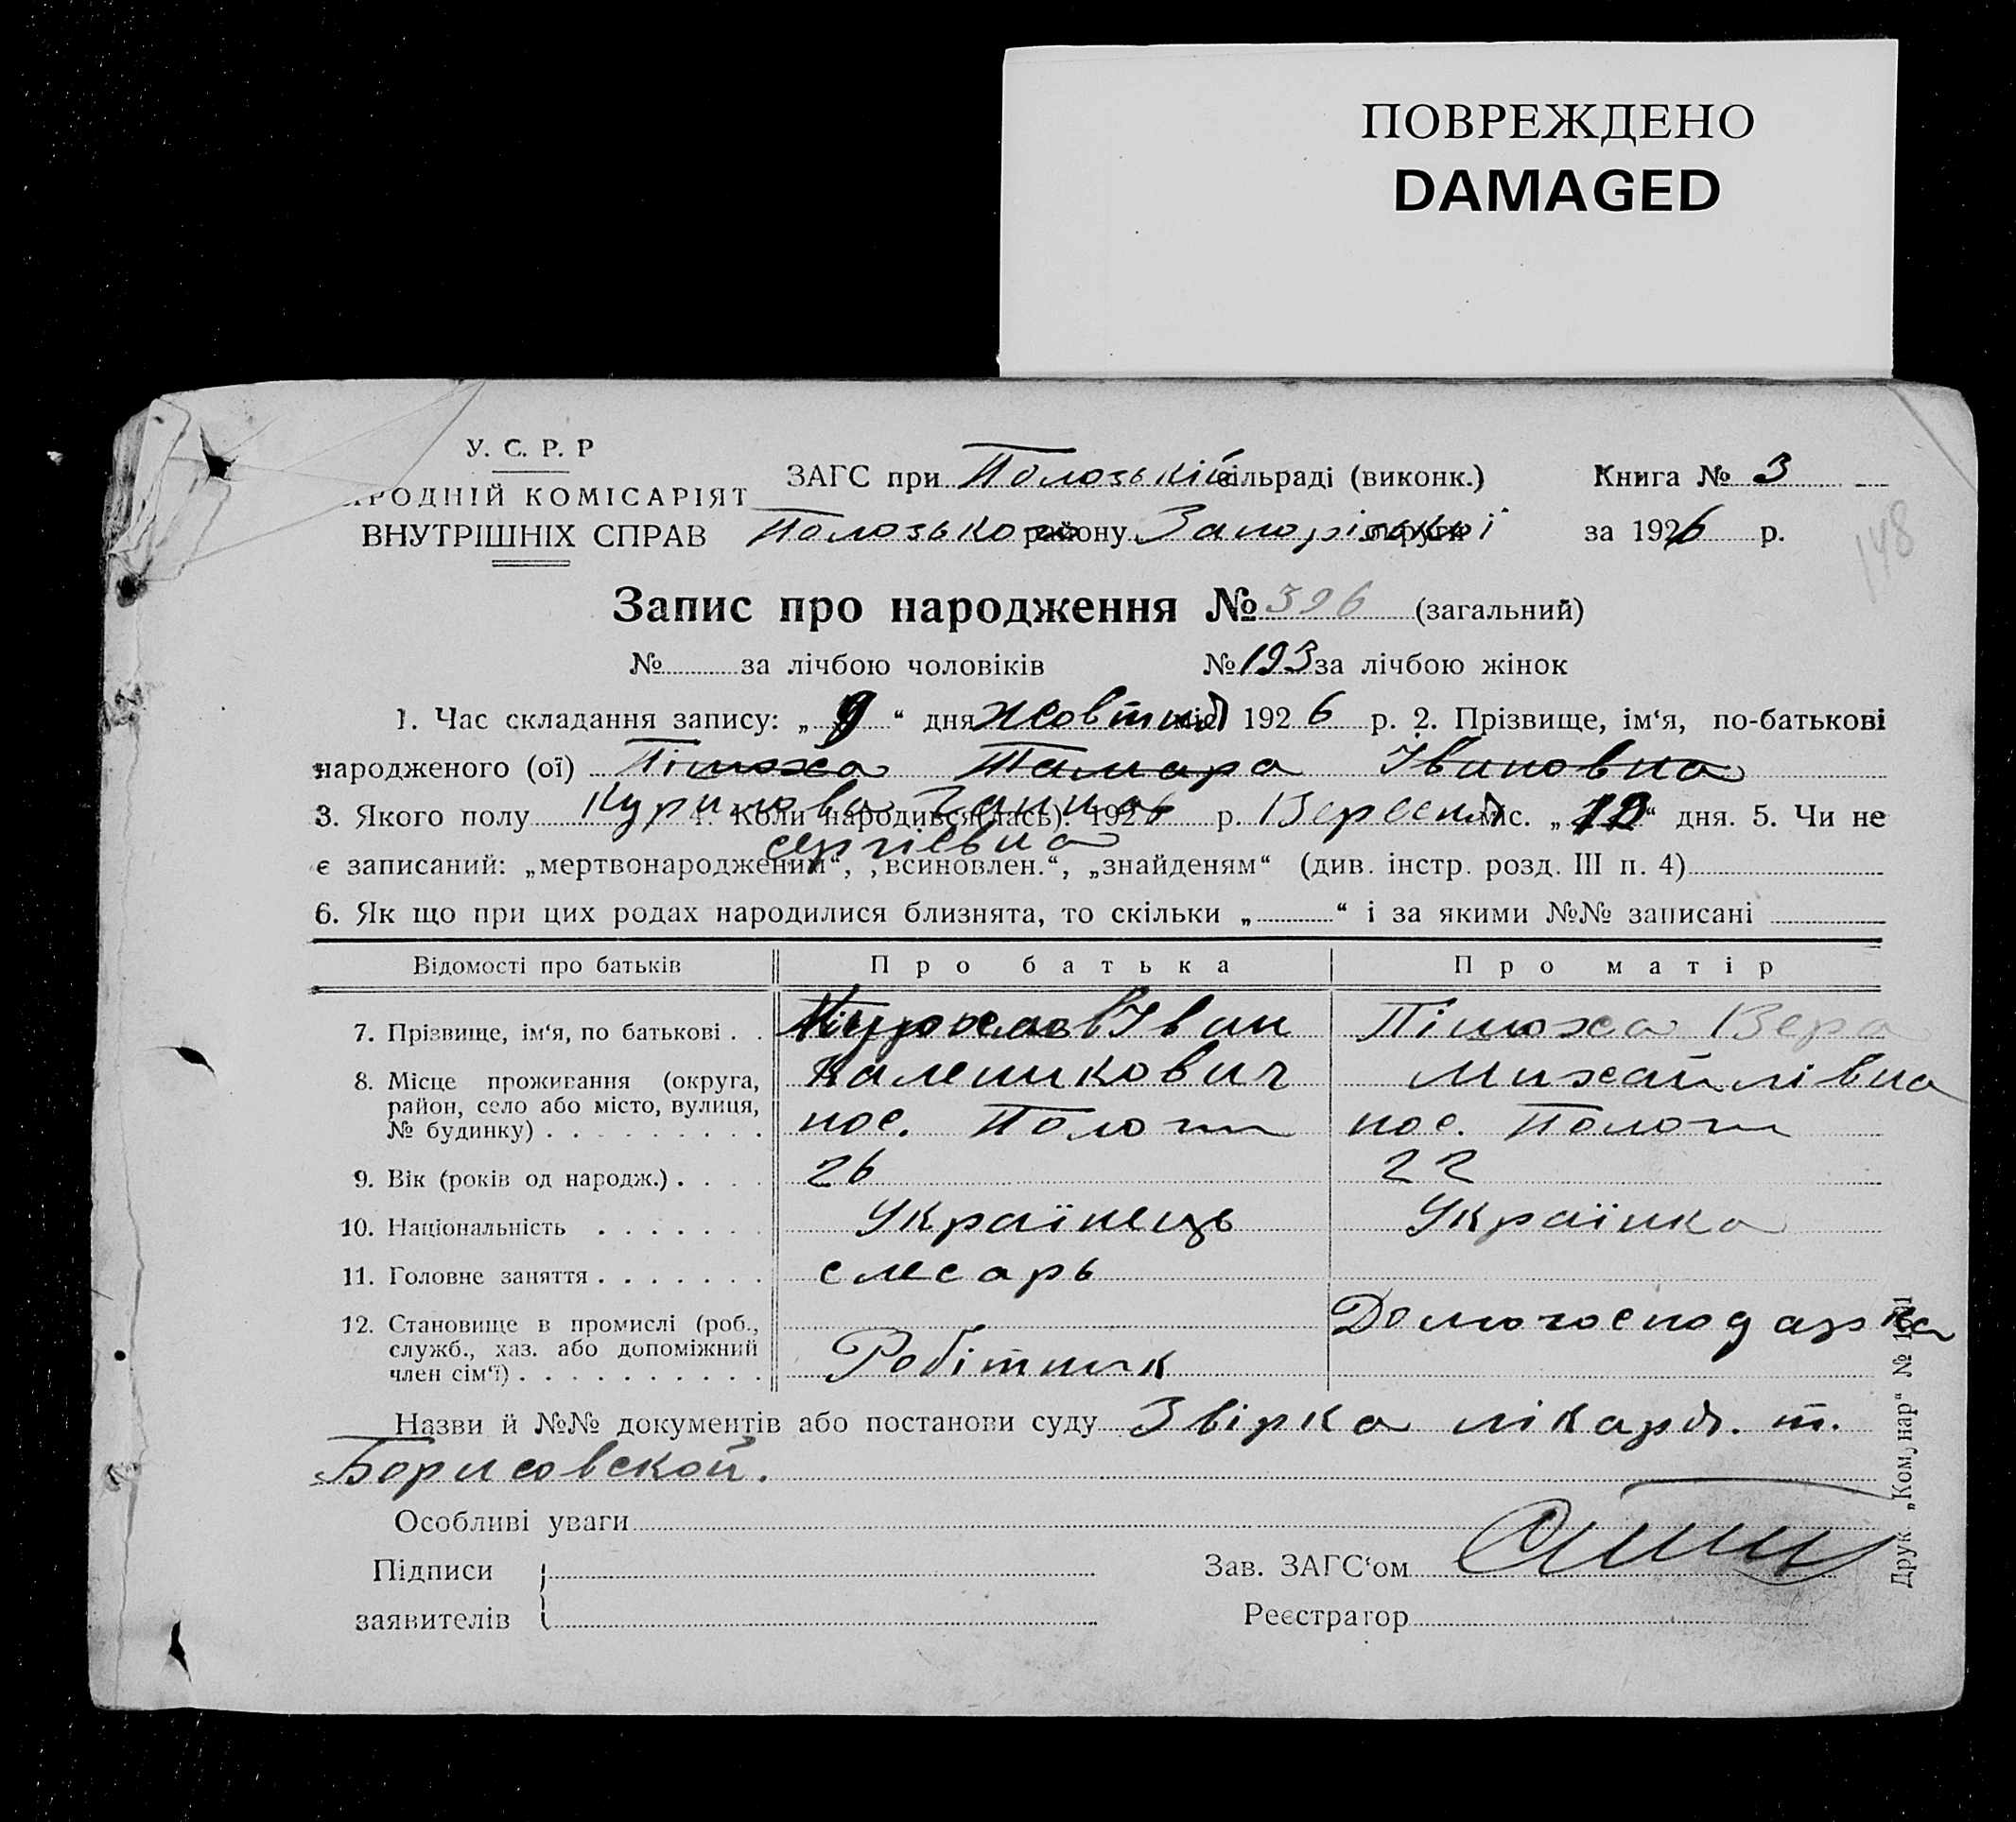 ПОВРЕЖДЕНО
DAMAGED
У. С. Р. Р
РОДНІЙ КОМІСАРІЯТ
ВНУТРІШНІХ СПРАВ
ЗАГС при Полозькій сільраді (виконк.)
Полозького району Запорізької округи
Книга № 3
за 1926 р.
148
Запис про народження № 396 (загальний)
№ за лічбою чоловіків № 193 за лічбою жінок
1. Час складання запису: „ 9 “ дня Жовтня міс. 1926 р. 2. Прізвище, ім‘я, по-батькові
народженого (ої) Тамара Івановна
3. Якого полу 4. Коли народився(лась). 1926 р. Вересня міс. „ 12 “ дня. 5. Чи не
Курилова Ганна
Сергієвна
є записаний: „мертвонароджений“, „всиновлен.“, „знайденям“ (див. інстр. розд. III п. 4)
6. Як що при цих родах народилися близнята, то скільки „ “ і за якими №№ записані
Відомості про батьків Про батька Про матір
7. Прізвище, ім‘я, по батькові . . Іван Вера
8. Місце проживання (округа, Каленикович Михайлівна
район, село або місто, вулиця,
№ будинку) . . . . . . . . . пос. Пологи пос. Пологи
9. Вік (років од народж.) . . . . 26 22
10. Національність . . . . . . . Українець Українка
11. Головне заняття . . . . . . . слесарь
12. Становище в промислі (роб., Домогосподарка
служб., хаз. або допоміжний
член сім‘ї) . . . . . . . . . . Робітник
Назви й №№ документів або постанови суду Звірка лікаря. т.
Борисовской.
Особливі уваги
Підписи
заявителів
Зав. ЗАГС‘ом
Реєстратор
Друк. „Ком,нар“ №